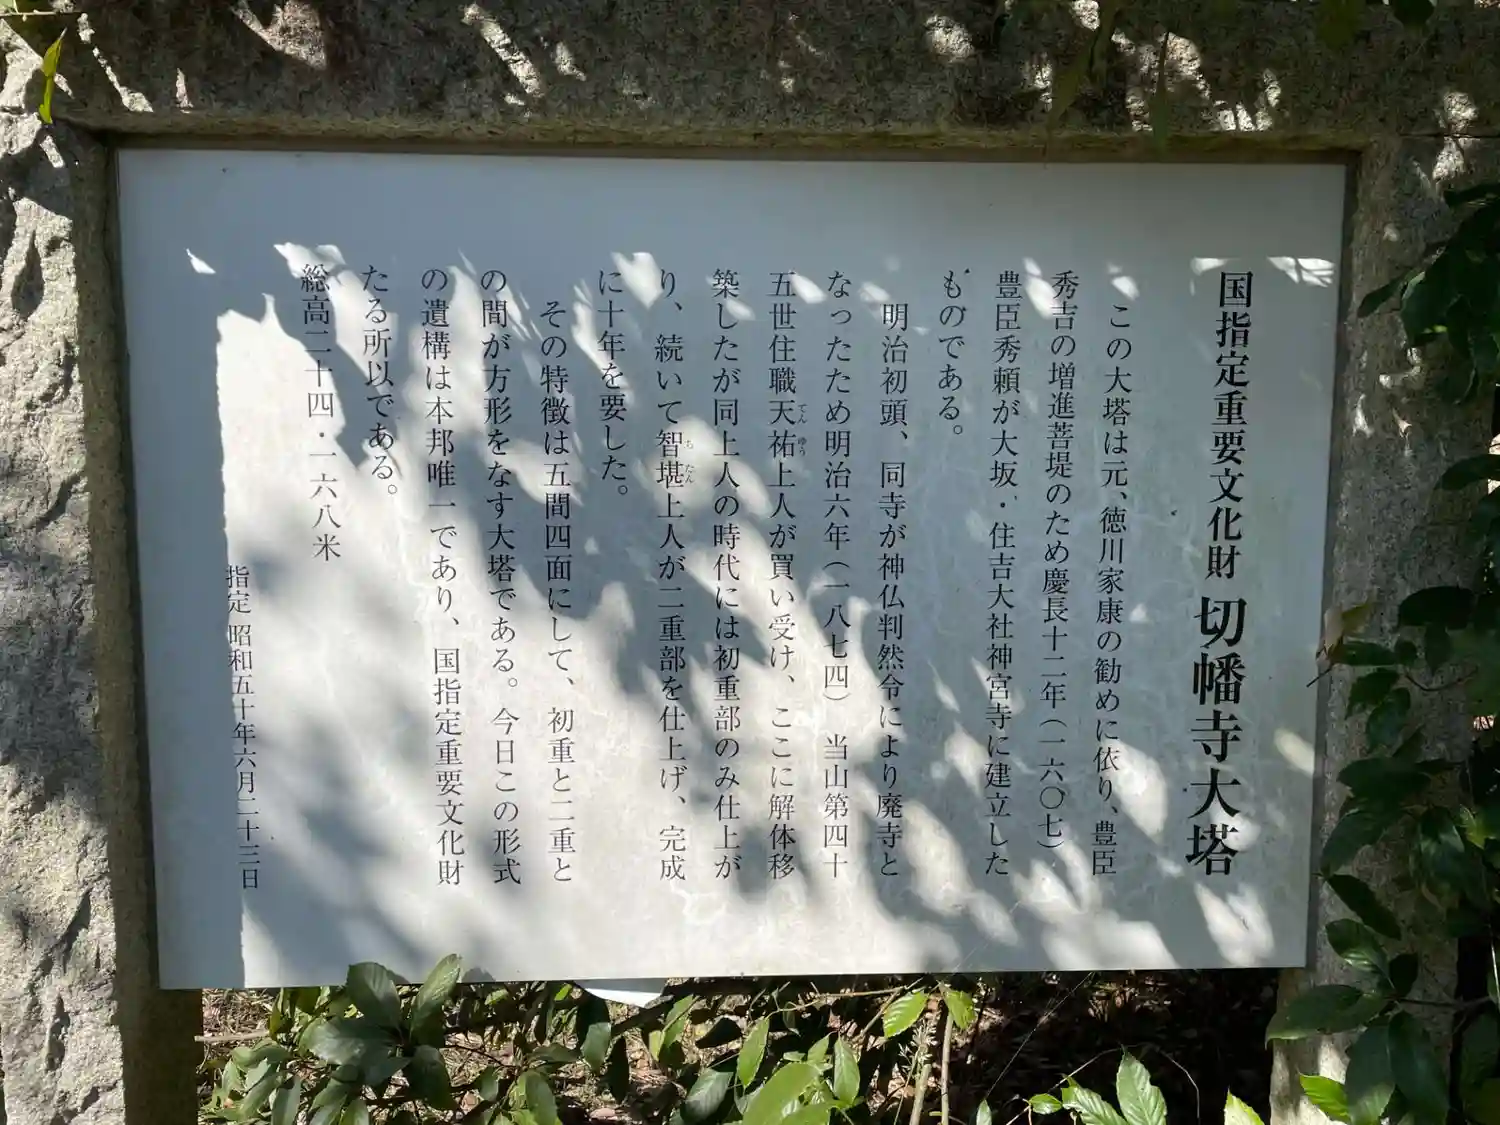 国指定重要文化財 切幡寺大塔
この大塔は元、徳川家康の勧めに依り、豊臣
秀吉の増進菩提のため慶長十二年（一六〇七）
豊臣秀頼が大坂・住吉大社神宮寺に建立した
ものである。
明治初頭、同寺が神仏判然令により廃寺と
なったため明治六年（一八七四） 当山第四十
五世住職天祐上人が買い受け、ここに解体移
築したが同上人の時代には初重部のみ仕上が
り、続いて智堪上人が二重部を仕上げ、完成
に十年を要した。
その特徴は五間四面にして、初重と二重と
の間が方形をなす大塔である。今日この形式
の遺構は本邦唯一であり、国指定重要文化財
たる所以である。
総高二十四・一六八米
指定 昭和五十年六月二十三日